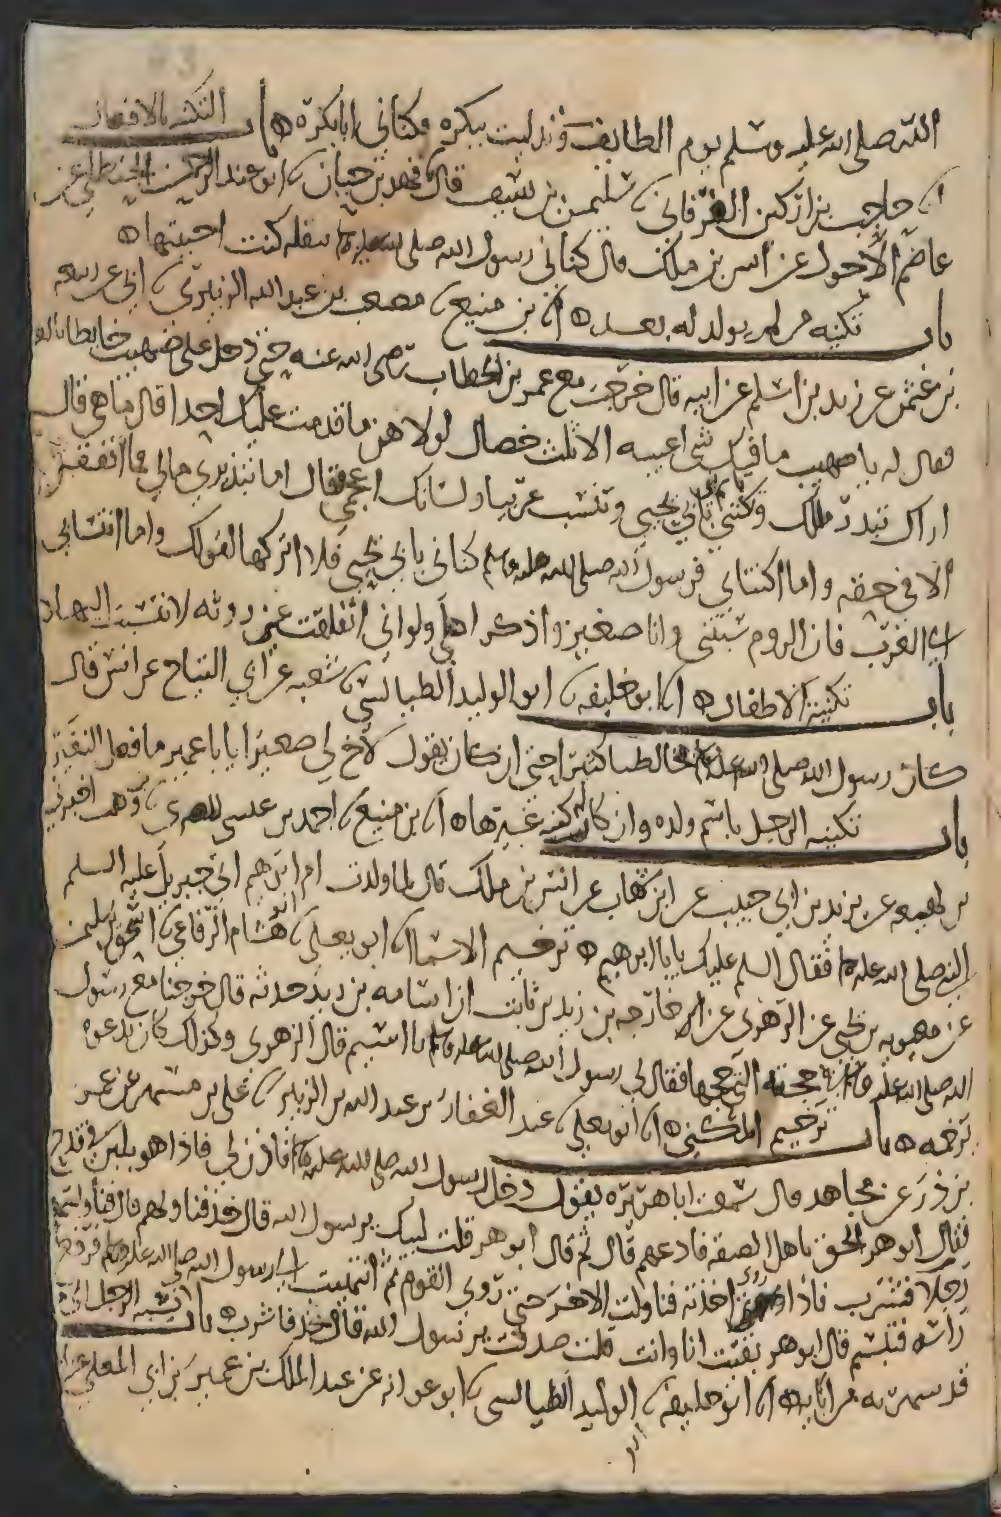 الله صلى الله عليه وسلم يوم الطايف وتدليت ببكره فكناني ابا بكرة ه باب التكنية بالافعال
حاجب بن اركين الفرغاني سليمن بن سيف قال فهد بن حيان ابو عبد الرحمن
عاصم الاحول عن انس بن ملك قال كناني رسول الله صلى الله عليه ببقله كنت اجتنيها ه
باب تكنيه من لم يولد له بعد ه ابن منيع مصعب بن عبد الله الزبيري ابي عن ربيعه
بن عثمن عن زيد بن اسلم عن ابيه قال خرجت مع عمر بن الخطاب رضي الله عنه حتى دخل على صهيب حايطا بالعا
فقال له يا صهيب ما فيك شي اعيبه الا ثلث خصال لولا هن ما قدمت عليك احدا قال ما هي قال
اراك تبذر مالك وتكتني باسم نبي بابي يحيى وتنتسب عربيا ولسانك اعجمي فقال اما تبذيري مالي فما انفقه
الا في حقه واما اكتنائي فرسول الله صلى الله عليه وسلم كناني بابي يحيى فلا اتركها لقولك واما انتسابي
الى العرب فان الروم سبتني وانا صغير واذكر اهلي ولو اني انفلقت عني روثه لانتسبت اليها
باب تكنية الاطفال ه ابو خليفه ابو الوليد الطيالسي شعبه عن ابي التياح عن انس قال
كان رسول الله صلى الله عليه يخالطنا كثيرا حتى ان كان يقول لاخ لي صغير يا با عمير ما فعل النغير
باب تكنيه الرجل باسم ولده وان كان له كنيه غيرها ه ابن منيع احمد بن عيسى المصري بن وهب اخبرني
بن لهيعه عن يزيد بن ابي حبيب عن ابن شهاب عن انس بن ملك قال لما ولدت ام ابرهيم اتى جبريل عليه السلم
النبي صلى الله عليه فقال السلم عليك يا با ابرهيم ه ترخيم الاسما ابو يعلى ابو هشام الرفاعي اسحق بن سليمن
عن معويه بن يحيى عن الزهري عن خارجه بن زيد بن ثابت ان اسامه بن زيد حدثه قال خرجنا مع رسول
الله صلى الله عليه في حجته التي حجها فقال لي رسول الله صلى الله عليه وسلم يا اسيم قال الزهري وكذلك كان يدعوه
ترخمه ه باب ترخيم الكنى ه ابو يعلى عبد الغفار بن عبد الله بن الزبير علي بن مسهر عن عمر
بن ذر عن مجاهد قال سمعت ابا هريره يقول دخل رسول الله صلى الله عليه فاذن لي فاذا هو بلبن في قدح
فقال ابو هر الحق باهل الصفه فادعهم قال ثم قال ابو هر قلت لبيك يرسول الله قال خذ فناولهم قال فناولتهم
رجلا فشرب فاذا روي اخذته فناولت الاخر حتى روي القوم ثم انتهيت الى رسول الله صلى الله عليه وسلم فرفع
راسه فتبسم قال ابو هر بقيت انا وانت قلت صدقت يرسول الله قال خذ فاشرب ه باب
قد سمي به من ابايه ه ابو خليفه الوليد الطيالسي ابو عوانه عن عبد الملك بن عمير بن ابي المعلى عن